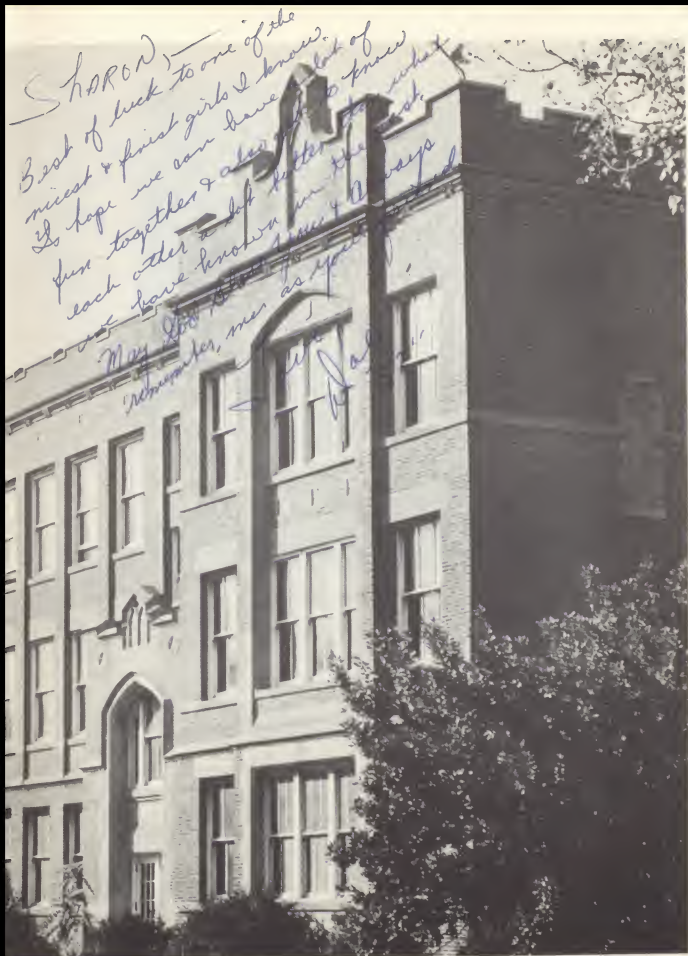 SHARON,—
Best of luck to one of the
nicest & finest girls I know.
I hope we can have a lot of
fun together & also to know
each other a lot better than what
we have known in the past.
May God bless you & always
remember me as your friend
Dale